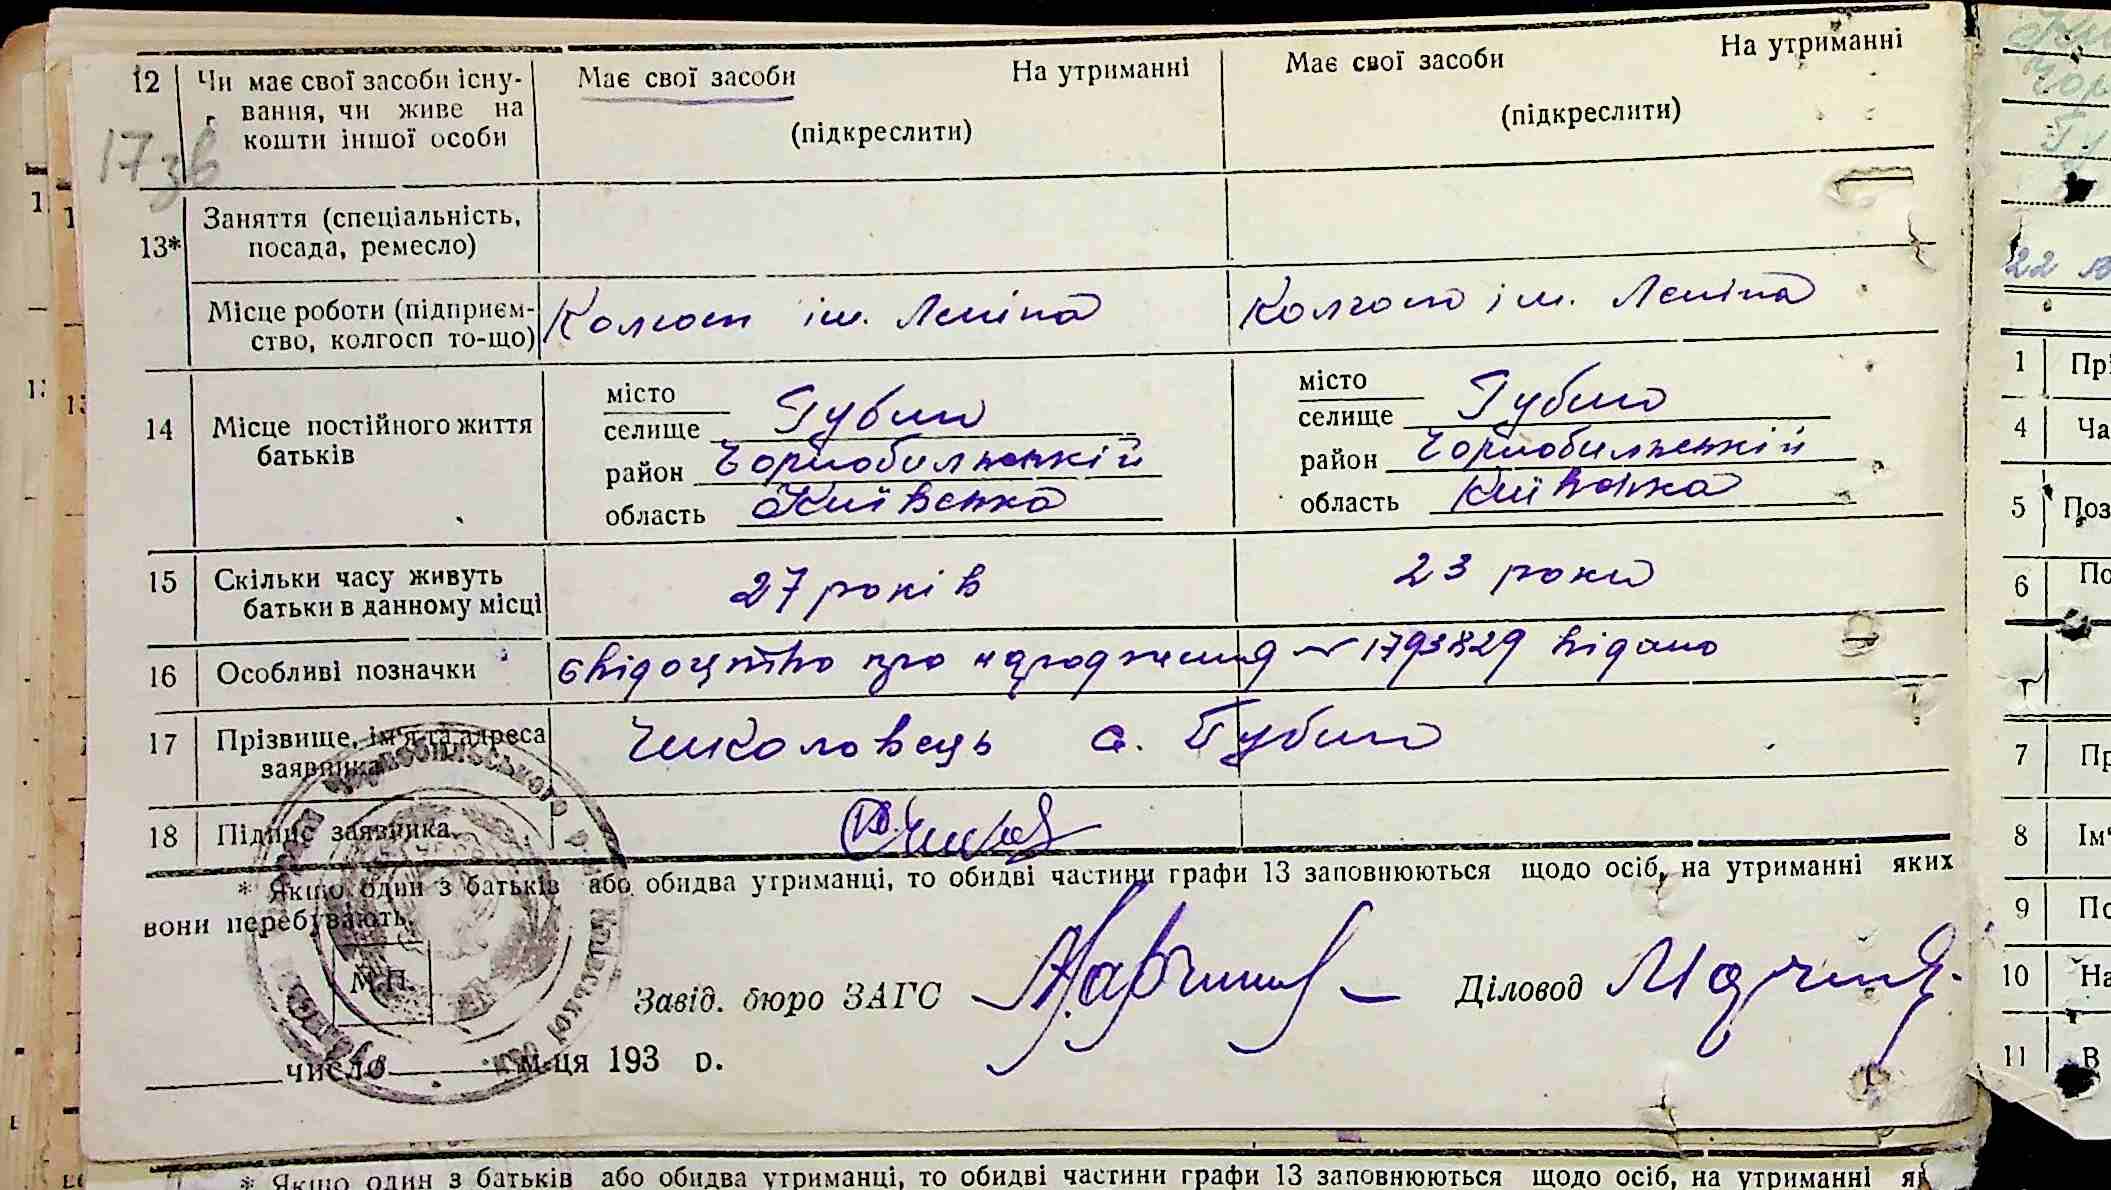 12 Чи має свої засоби існу- Має свої засоби На утриманні Має свої засоби На утриманні
вання, чи живе на
кошти іншої особи (підкреслити) (підкреслити)
17зв
13* Заняття (спеціальність,
посада, ремесло)
Місце роботи (підприєм- Колгосп ім. Леніна Колгосп ім. Леніна
ство, колгосп то-що)
місто місто
14 Місце постійного життя селище Губин селище Губин
батьків район Чорнобильський район Чорнобильський
область Київська область Київська
15 Скільки часу живуть 27 років 23 роки
батьки в данному місці
16 Особливі позначки свідоцтво про народження № 1793829 видано
17 Прізвище, ім'я та адреса Чиколовець с. Губин
заявника
18 Підпис заявника
* Якщо один з батьків або обидва утриманці, то обидві частини графи 13 заповнюються щодо осіб, на утриманні яких
вони перебувають.
М.П.
Завід. бюро ЗАГС Діловод
число м-ця 193 р.
* Якщо один з батьків або обидва утриманці, то обидві частини графи 13 заповнюються щодо осіб, на утриманні
22
1 Прі
4 Ча
5 Поз
6 По
7 Пр
8 Ім'
9 По
10 На
11 В